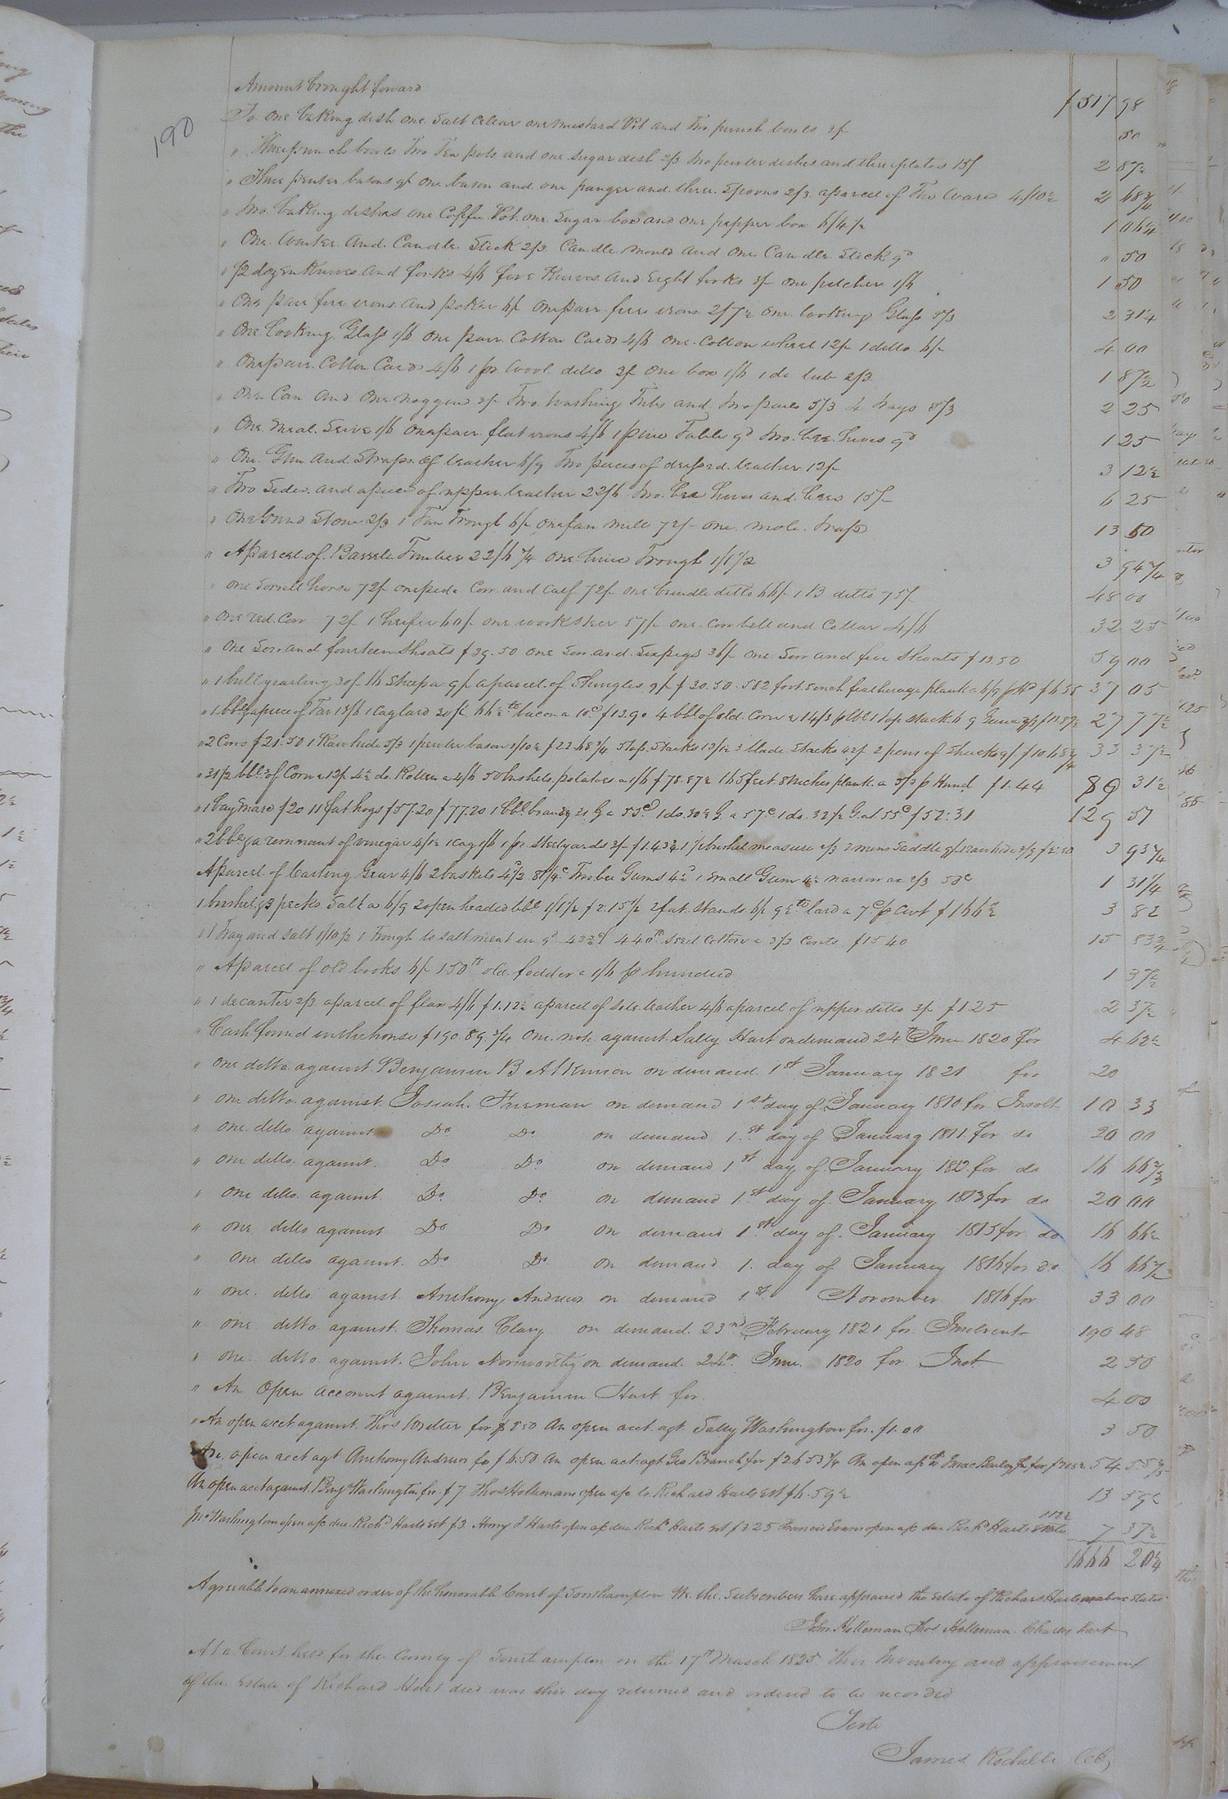 Amount brought forward $517 98
190
To one baking dish one Salt Celear one mustard Pot and Two punch bowls 3/ 50
" Three punch bowls Two Tea pots and one Sugar dish 2/3 two pewter dishes and three plates 15/ 2 87½
" Three pewter basons 9/ one bason and one and three Spoons 2/3 a parcel of Tin Ware 4/10½ 2 68¾
" two baking dishes one Coffee Pot one Sugar box and one pepper box 6/4½ 1 06¼
" One Waiter And Candle Stick 2/3 Candle moulds and One Candle Stick 9d " 50
" ½ dozen Knives And forks 4/6 five Knives And Eight forks 3/ one pitcher 1/6 1 50
" One pair fire irons and poker 6/ One pair fire irons 2/7½ one looking Glass 5/3 2 31¼
" One looking Glass 1/6 One pair Cotton Cards 4/6 one Cotton wheel 12/ 1 ditto 6/ 4 00
" One pair Cotton Cards 4/6 1 pr Wool ditto 3/ One box 1/6 1 do tub 2/3 1 87½
" One Can And One noggen 3/ Two Washing Tubs and two pails 5/3 4 trays 5/3 2 25
" One Meal Seive 1/6 One pair flat irons 4/6 1 pine Table 9d two bee hives 9d 1 25
" One Gun And Straps of leather 6/9 Two pieces of dressed leather 12/ 3 12½
" Two Sides and a piece of upper leather 22/6 two bee hives and bees 15/ 6 25
" One Grind Stone 2/3 1 Tan Trough 6/ One fan Mill 72/ one mole trap 13 50
" A parcel of Barrell Timber 22/6 ¼ one Trough 1/1½ 3 94¼
" one Sorrell horse 72/ one pide Cow and Calf 72/ one brindle ditto 66/ 1 B ditto 75/ 48 00
" One red Cow 72/ 1 heifer 60/ one work Steer 57/ one Cow bell and Collar 4/6 32 25
" One Sow and fourteen Shoats $39.50 one Sow and Six pigs 36/ one Sow and five Shoats $13.50 59 00
" 1 bull yearling 30/ 16 Sheep a 9/ a parcel of Shingles 9/ $30.50 582 foot 5 inch featherage plank a 6/9 $6 55 37 05
" 1 bbl & a piece of Tar 13/6 1 Cag lard 30/ 66½ lb bacon a 10c $13.90 4 bbl of old Corn a 14/3 1 top Stack 6/9 27 77½
" 2 Cows $21.50 1 Raw hide 5/3 1 pewter bason 1/10½ $22 68¾ 5 top Stacks 13/1½ 3 blade Stacks 42/ 2 pens of Shucks 9/ $10 68¾ 33 37½
" 31½ bbls of Corn a 12/ 4½ do Rotten a 4/6 50 bushels potatoes a 1/6 $78.87½ 165 feet Stiches plank a 5/3 p Hund $1.44 80 31½
" 1 bay mare $20 11 fat hogs $57.20 $77.20 1 bbl brandy 21 G a 55c 1 do 30½ G a 57c 1 do 32½ G at 55c $52.31 129 51
" 2 bbls & a remnant of vinegar 4/1½ 1 Cag 1/6 1 pr Steelyards 3/ $1.43¾ 1 ½ bushel measure 2/3 2 mens Saddle 9/ 1 raw hide 2/3 $2.50 3 93¾
A parcel of Carting Gear 4/6 2 baskets 4/2 Three Gums 4/2 1 Small Gum 4½ 2/3 58c 1 31¼
1 bushel & 3 pecks Salt a 6/9 2 open headed bbl 1/1½ $2.15½ 2 fat Stands 6/ 9½ lb lard a 7c p Cwt $1 66½ 3 82
" 1 Tray and Salt 1/10½ 1 Trough to Salt meat in 9d 43½ 440 lb Seed Cotton a 2/3 Cents $15 40 15 83¾
" A parcel of old books 6/ 150 lb old fodder a 1/6 p hundred 1 37½
" 1 decanter 2/3 a parcel of flax 4/6 $1.12½ a parcel of Sole leather 4/6 a parcel of upper ditto 3/ $1 25 2 37½
" Cash found in the house $190.89¾ One note against Sally Hart on demand 24th June 1820 for 4 62½
" one ditto against Benjamin B Atkinson on demand 1st January 1821 for 20
" one ditto against Josiah Freeman on demand 1st day of January 1810 for Insolt 10 33
" one ditto against Do Do on demand 1st day of January 1811 for do 20 00
" one ditto against Do Do on demand 1st day of January 1812 for do 16 66⅔
" one ditto against Do Do on demand 1st day of January 1813 for do 20 00
" one ditto against Do Do on demand 1st day of January 1815 for do 16 66½
" one ditto against Do Do on demand 1 day of January 1816 for do 16 66½
" one ditto against Anthony Andrews on demand 1st November 1816 for 33 00
" one ditto against Thomas Clary on demand 23rd February 1821 for Insolvent 190 48
" one ditto against John Norsworthy on demand 24th June 1820 for Inst 2 50
" An Open account against Benjamin Hart for 4 00
" An open acct against Thos for $2.50 An open acct agt Sally Washington for $1.00 3 50
An open acct agt Anthony Andrews for $6.50 An open acct agt Geo Branch for $26 53¼ An open a/c to Isaac for 54 55
An open acct against Benjn Washington for $7 Thos Holleman open a/c to Richard Harts est $6.59½ 13 59½
Jno Washington open a/c due Richd Harts est $3 Henry J Harts open a/c due Richd Harts est $3 25 Francis Evans open a/c due Richd Harts Estate 112½ 7 37½
1666 20¼
Agreeable to an annexed order of the honorable Court of Southampton We the Subscribers have appraised the Estate of Richard Hart as above stated
John Holleman Jos Holleman Charles Hart
At a Court held for the County of Southampton on the 17th March 1825 This Inventory and appraisement
of the Estate of Richard Hart decd was this day returned and ordered to be recorded
Teste
James Rochelle Clk